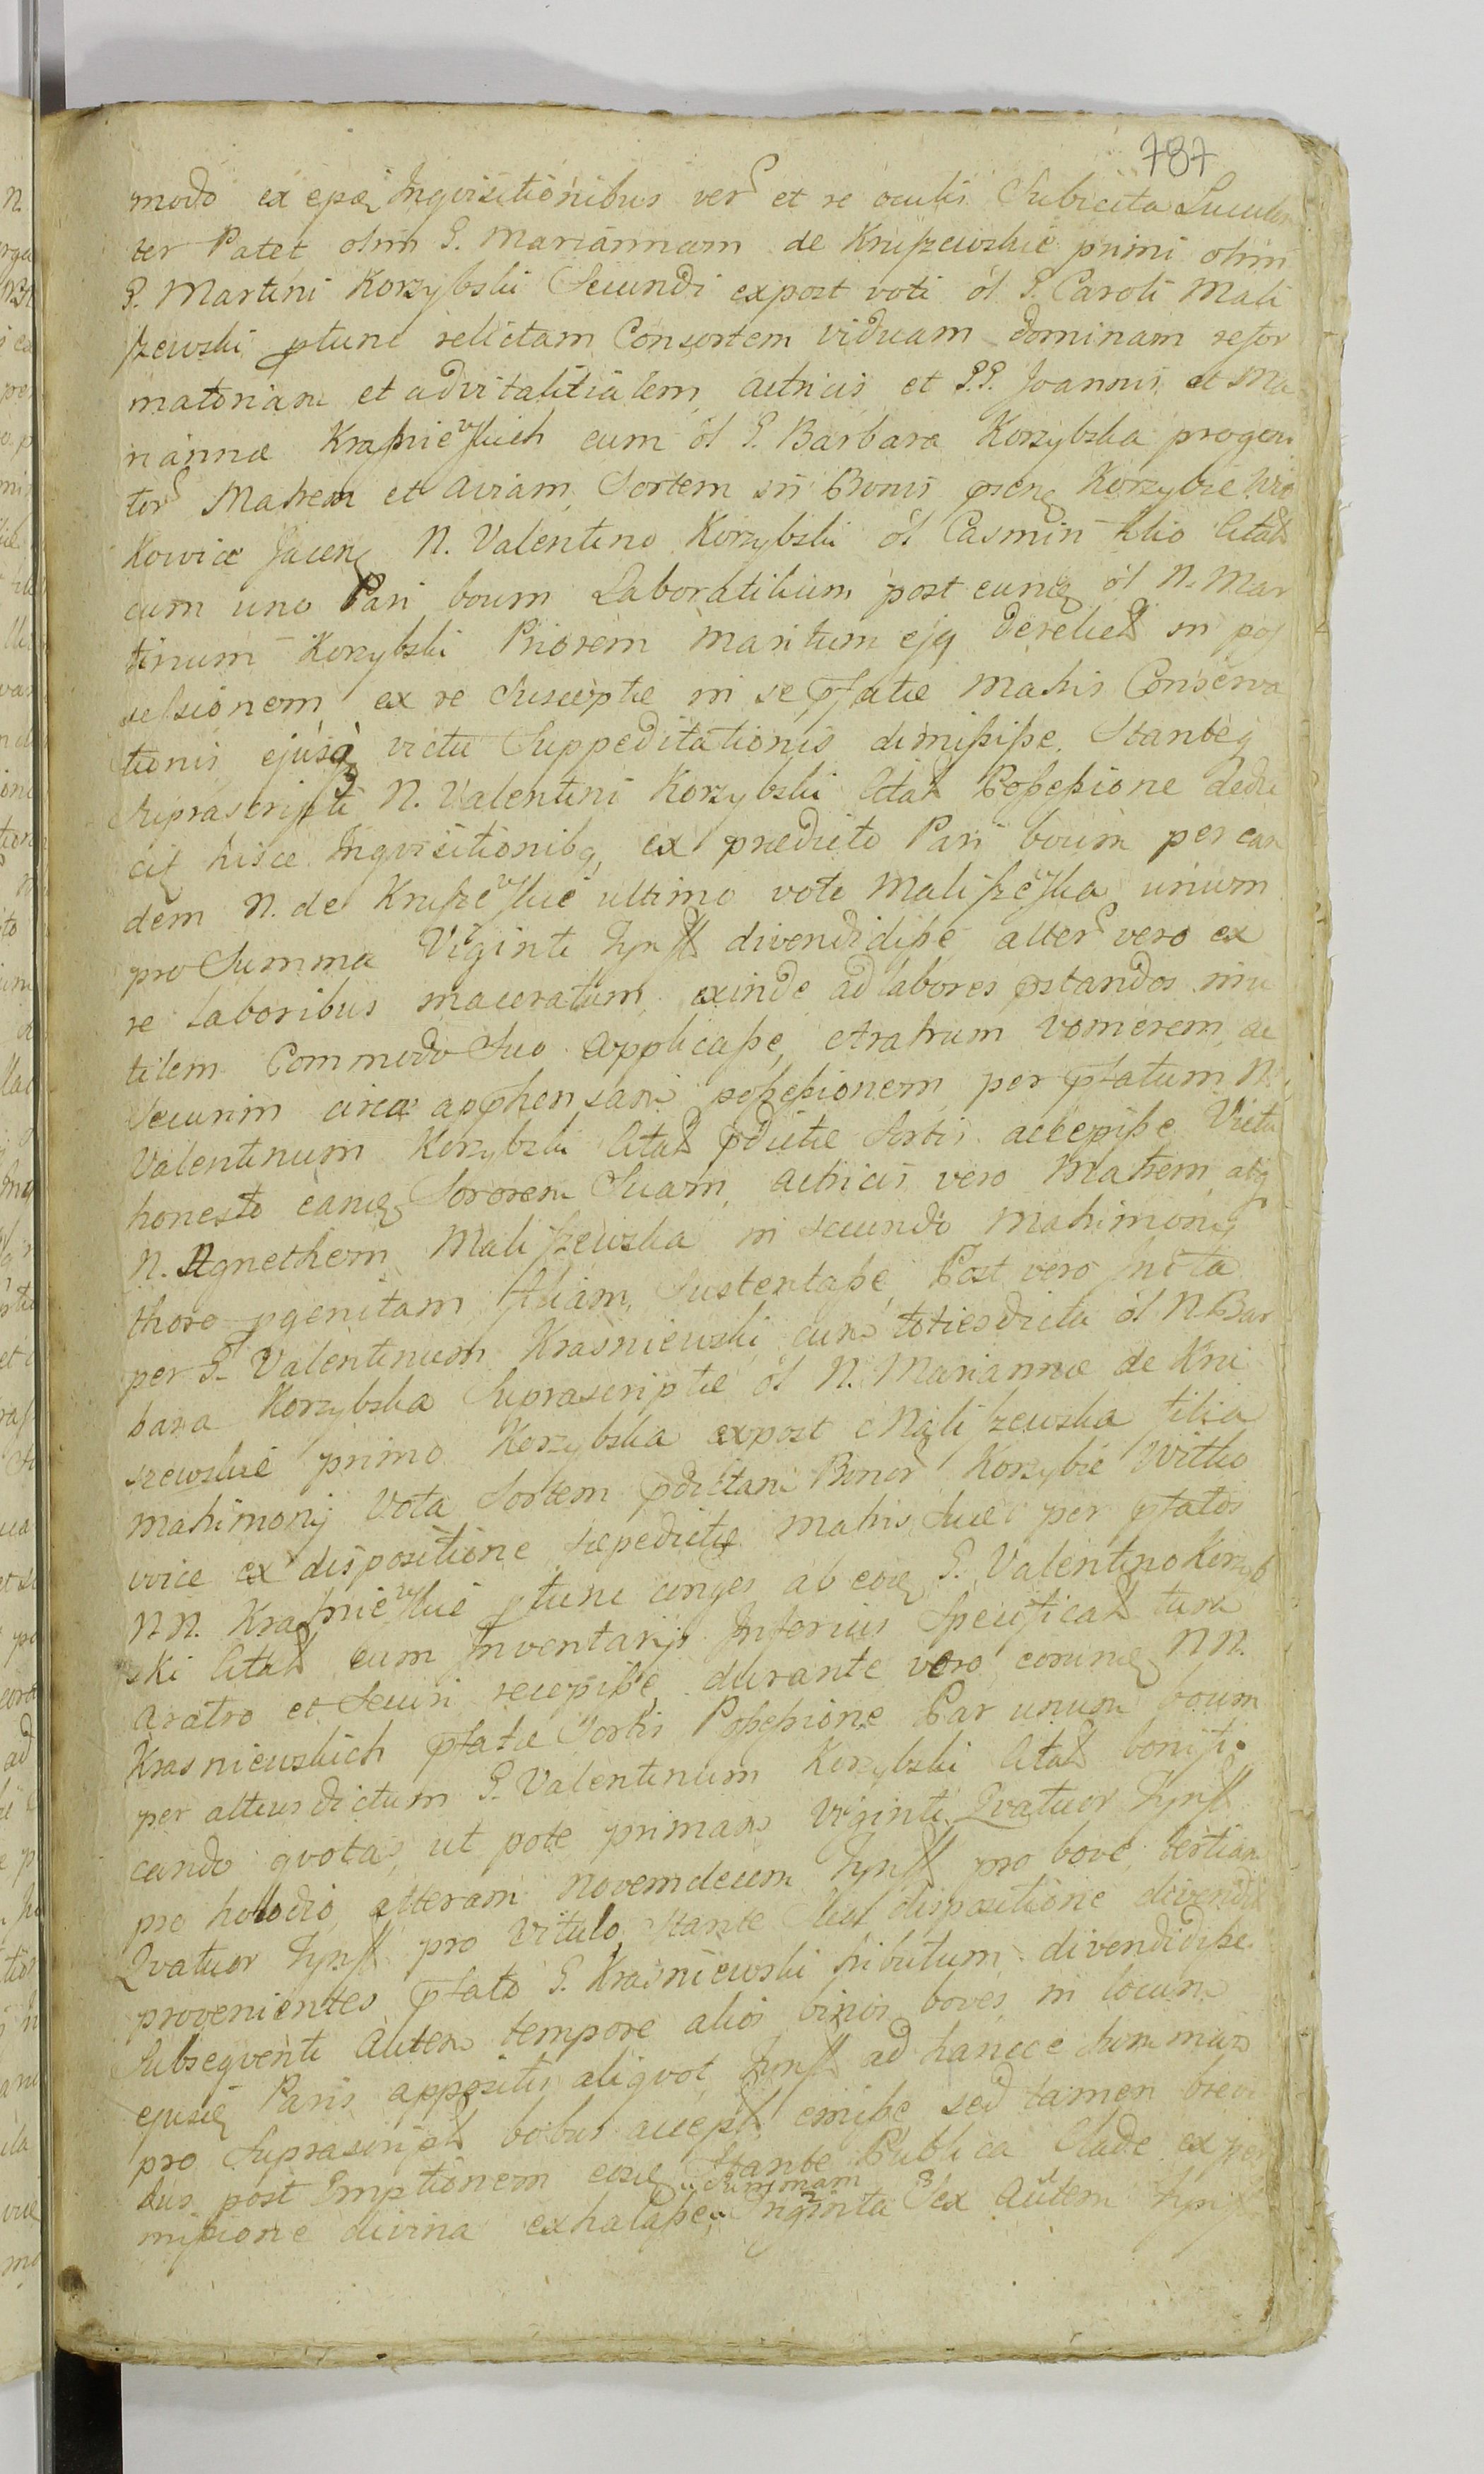 787
modo ex epą Inqvisitionibus ver et re oculis Subiecta Luculen
ter Patet olim G. Mariannam de Kruszewskie primi olim
G. Martini Korzybski Secundi expost voti ol G. Caroli Mali
szewski ptunc relictam Consortem viduam dominam refor
matoriam et advitalitialem, actricis et G.G. Joannis et Ma
riannæ Kraśniewskich cum ol G. Barbara Korzybska progeni
tor Matrem et aviam, Sortem in Bonis Korzybie Wit
kowice Jacen N. Valentino Korzybski ol Casmiri filio Citat
cum uno Pari boum Laboratilium post eunđ ol N. Mar
tinum Korzybski Priorem maritum ejq derelict in pos
sessionem, ex re Susceptæ in se ptatæ Matris Conserva
tionis ejusq victu Suppeditationis dimisisse. Stanteq
Suprascripti N. Valentini Korzybski Citat Possessione dedu
cit hisce Inqvisitionibq, ex prædicto Pari boum per ean
dem N. de Kruszewskie ultimo voto Maliszewska unum
pro Summa Viginti Tynff divendidisse alter vero ex
re laboribus maceratum, exinde ad labores pstandos inu
tilem Commodo Suo applicasse, Aratrum Vomerem, ac
Securim circa apphensam possessionem per ptatum N.
Valentinum Korzybski Citat pdictæ Sortis accepisse Victu
honesto eanđ Sororem Suam, actricis vero Matrem, atq
N. Agnethem Maliszewska in secundo Matrimonij
thoro pgenitam filiam, Sustentasse, Post vero Inita
per G. Valentinum Kraśniewski cum totiesdicta ol N. Bar
bara Korzybska Suprascriptæ ol N. Mariannæ de Kru
szewskie primo Korzybska expost Maliszewska filia
matrimonij Vota Sortem pdictam Bonor Korzybie Witko
wice ex dispositione sæpedictæ Matris Suæ per ptatos
N N. Kraśniewskie ptunc conges ab eođ G. Valentino Korzyb
ski Citat cum Inventarijs Inferius Specificat tum
Aratro et Securi recepisse, durante vero eorunđ N N.
Kraśniewskich ptatæ Sortis Possessione Par unum boum
per altius dictum G. Valentinum Korzybski Citat bonifi
cando qvotas, ut pote primam Viginti Qvatuor Tynff
pro hollodio, alteram novemdecem Tynff pro bove, tertiam
Qvatuor Tynff pro Vitulo, Stante Sui dispositione divendit
provenientes ptato G. Kraśniewski tributum divendidisse.
Subseqventi autem tempore alios binos boves in locum
ejusđ Paris appositis aliqvot Tynff ad hancce Summam
pro Suprascript bobus accept emisse sed tamen brevi
bus post Emptionem eosđ Stante Publica Clade ex per
missione divina exhalasse, Summam Triginta Sex autem Tynff